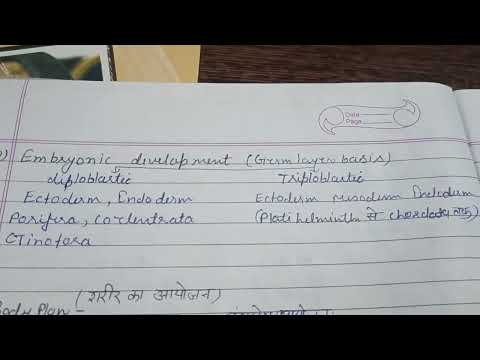 Date
Page
Embryonic divelapment (Germ layer basis)
diploblastic Triploblastic
Ectoderm, Endoderm Ectoderm mesoderm Endoderm
Porifera, Coelentrata (Platihelminth से chordata तक)
CTinofora
(शरीर का आयोजन)
Body Plan -